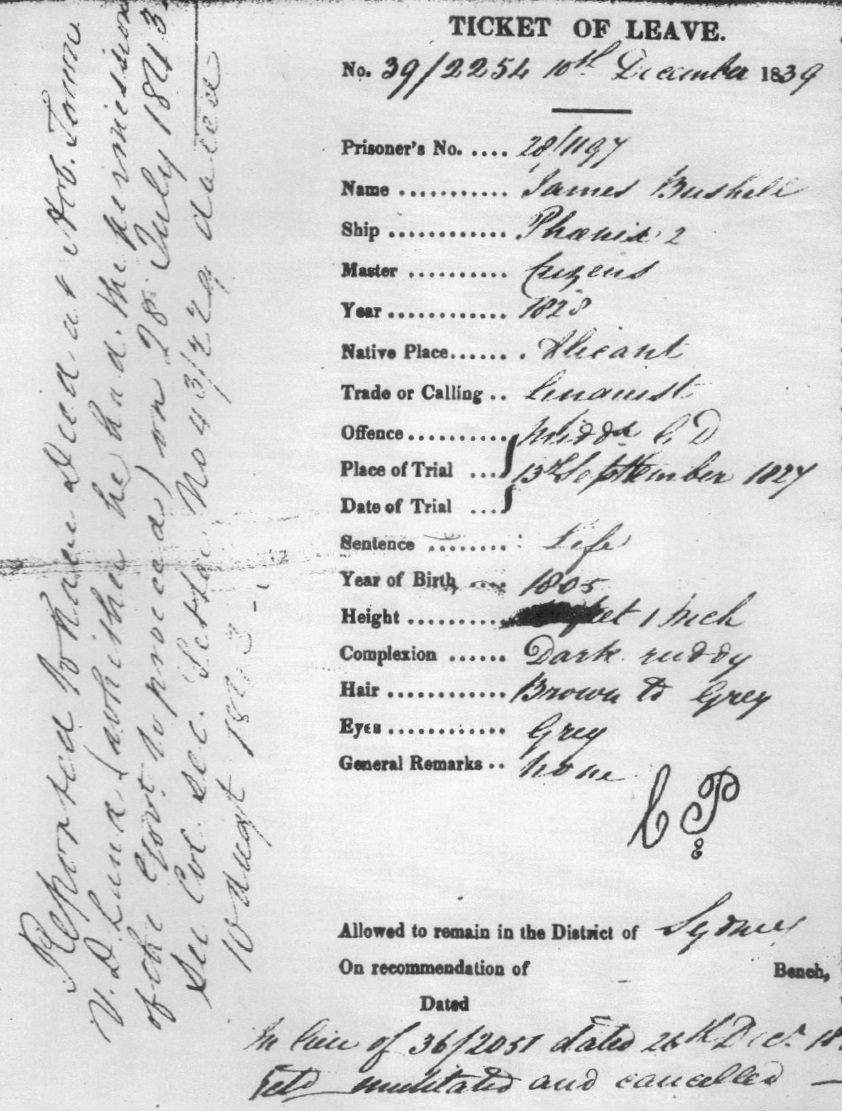 TICKET OF LEAVE.
No. 39/2254 10th December 1839
Prisoner's No. .... 28/1197
Name ........... James Bushell
Ship ............ Phœnix 2
Master .......... Cuzens
Year ............ 1828
Native Place....... Alicant
Trade or Calling .. Linguist
Offence ..........
Place of Trial ... Middx G D
Date of Trial ... 13th September 1827
Sentence ........ Life
Year of Birth .... 1805
Height .......... feet 1 Inch
Complexion ...... Dark ruddy
Hair ............ Brown to Grey
Eyes ............ Grey
General Remarks .. None
C P
Allowed to remain in the District of Sydney
On recommendation of Bench,
Dated
In lieu of 36/2051 dated 26th Decr. 18
mutilated and cancelled —
Reported to have Died at Hob. Town
V. D. Land (whither he had the permission
of the Govr. to proceed) on 28 July 1843.
See Col. Sec. Letter No 43/229 dated
10 August 1843 -